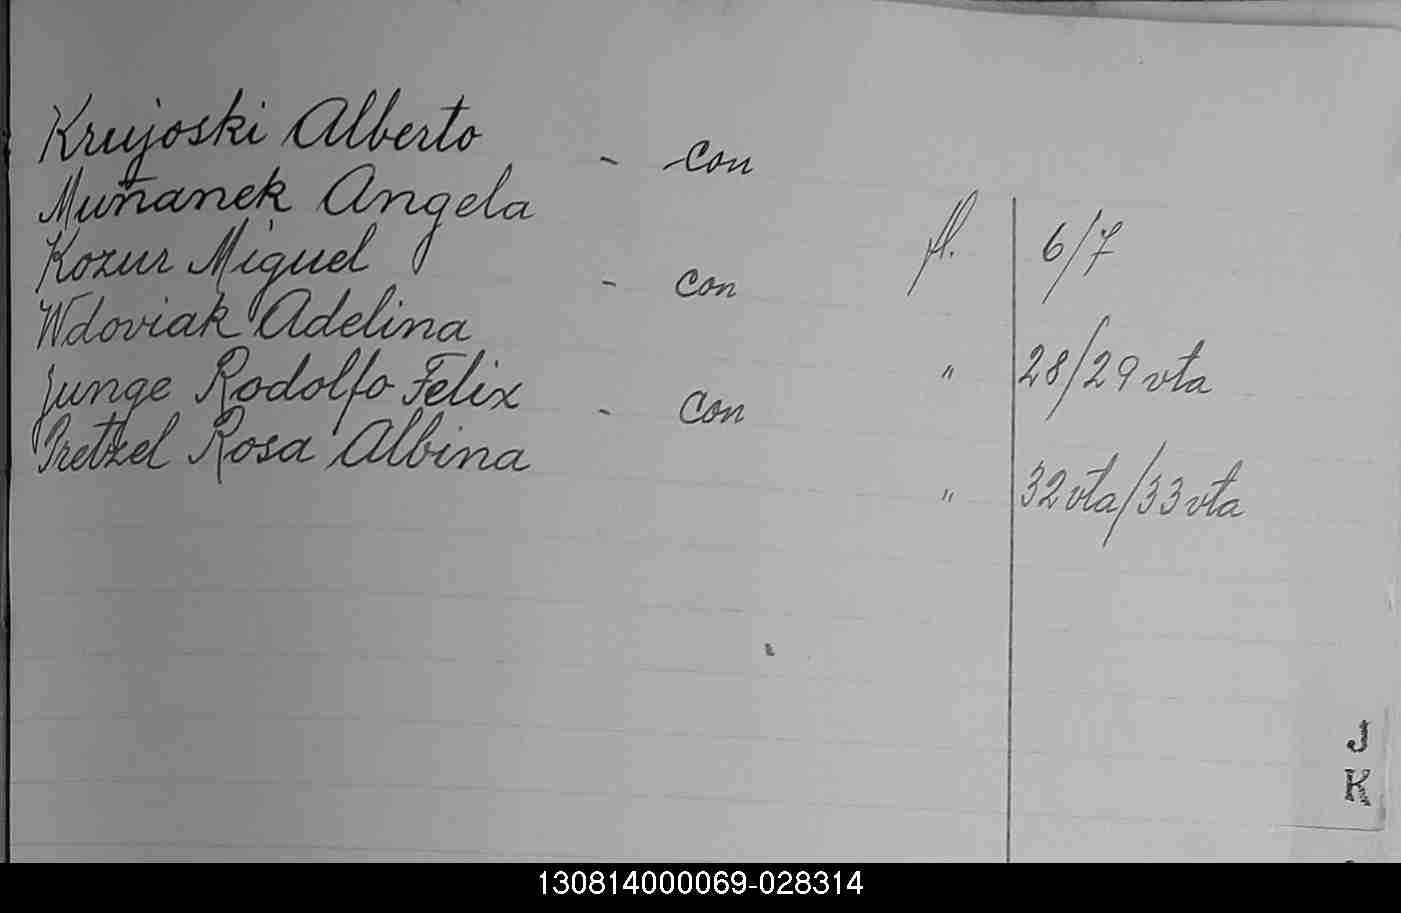 Krujoski Alberto - con
Muñanek Angela fl. 6/7
Kozur Miguel - con
Wdoviak Adelina " 28/29 vta
Junge Rodolfo Felix - con
Pretzel Rosa Albina " 32 vta/33 vta
J
K
130814000069-028314